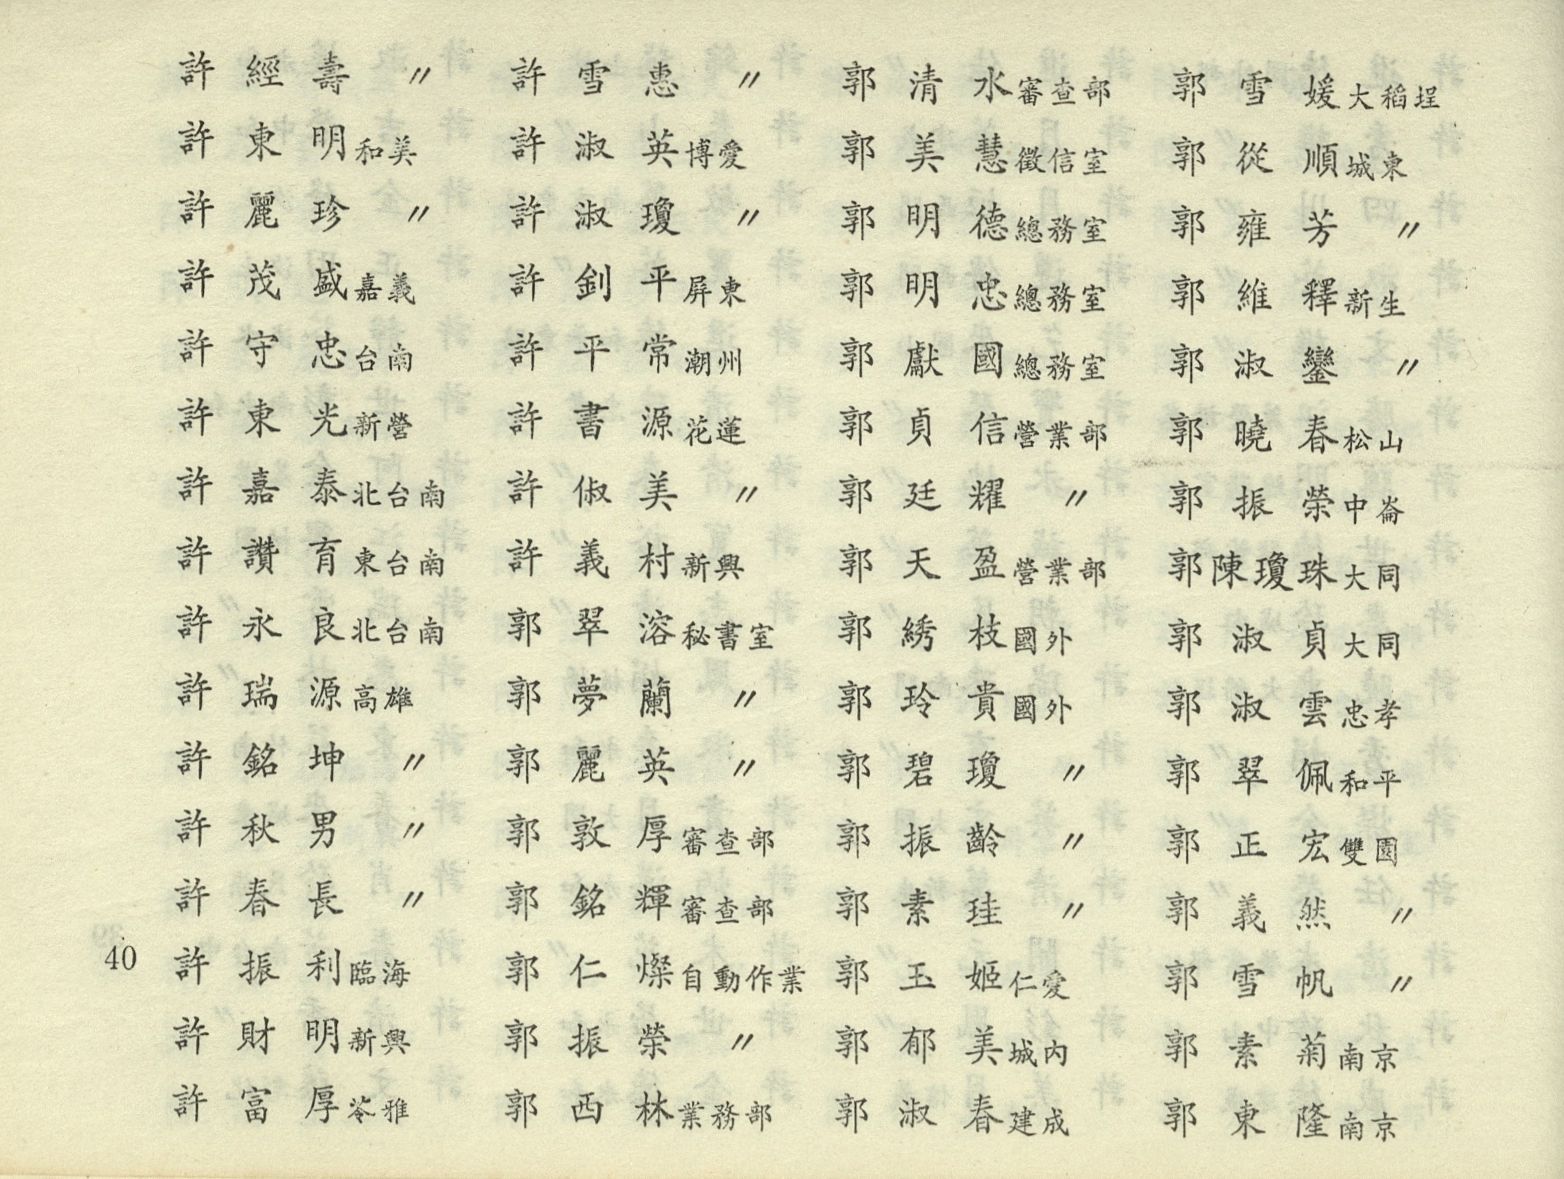 許經壽 〃
許東明 和美
許麗珍 〃
許茂盛 嘉義
許守忠 台南
許東光 新營
許嘉泰 北台南
許讚育 東台南
許永良 北台南
許瑞源 高雄
許銘坤 〃
許秋男 〃
許春長 〃
許振利 臨海
許財明 新興
許富厚 苓雅
許雪惠 〃
許淑英 博愛
許淑瓊 〃
許釗平 屏東
許平常 潮州
許書源 花蓮
許俶美 〃
許義村 新興
郭翠溶 秘書室
郭夢蘭 〃
郭麗英 〃
郭敦厚 審查部
郭銘輝 審查部
郭仁燦 自動作業
郭振榮 〃
郭西林 業務部
郭清水 審查部
郭美慧 徵信室
郭明德 總務室
郭明忠 總務室
郭獻國 總務室
郭貞信 營業部
郭廷耀 〃
郭天盈 營業部
郭綉枝 國外
郭玲貴 國外
郭碧瓊 〃
郭振齡 〃
郭素珪 〃
郭玉姬 仁愛
郭郁美 城內
郭淑春 建成
郭雪媛 大稻埕
郭從順 城東
郭雍芳 〃
郭維釋 新生
郭淑鑾 〃
郭曉春 松山
郭振榮 中崙
郭陳瓊珠 大同
郭淑貞 大同
郭淑雲 忠孝
郭翠佩 和平
郭正宏 雙園
郭義然 〃
郭雪帆 〃
郭素菊 南京
郭東隆 南京
40